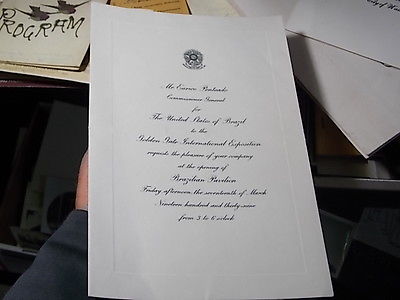 PROGRAM
City of
Mr Eurico Penteado
Commissioner General
for
The United States of Brazil
to the
Golden Gate International Exposition
requests the pleasure of your company
at the opening of
Brazilian Pavilion
Friday afternoon, the seventeenth of March
Nineteen hundred and thirty-nine
from 3 to 6 o'clock